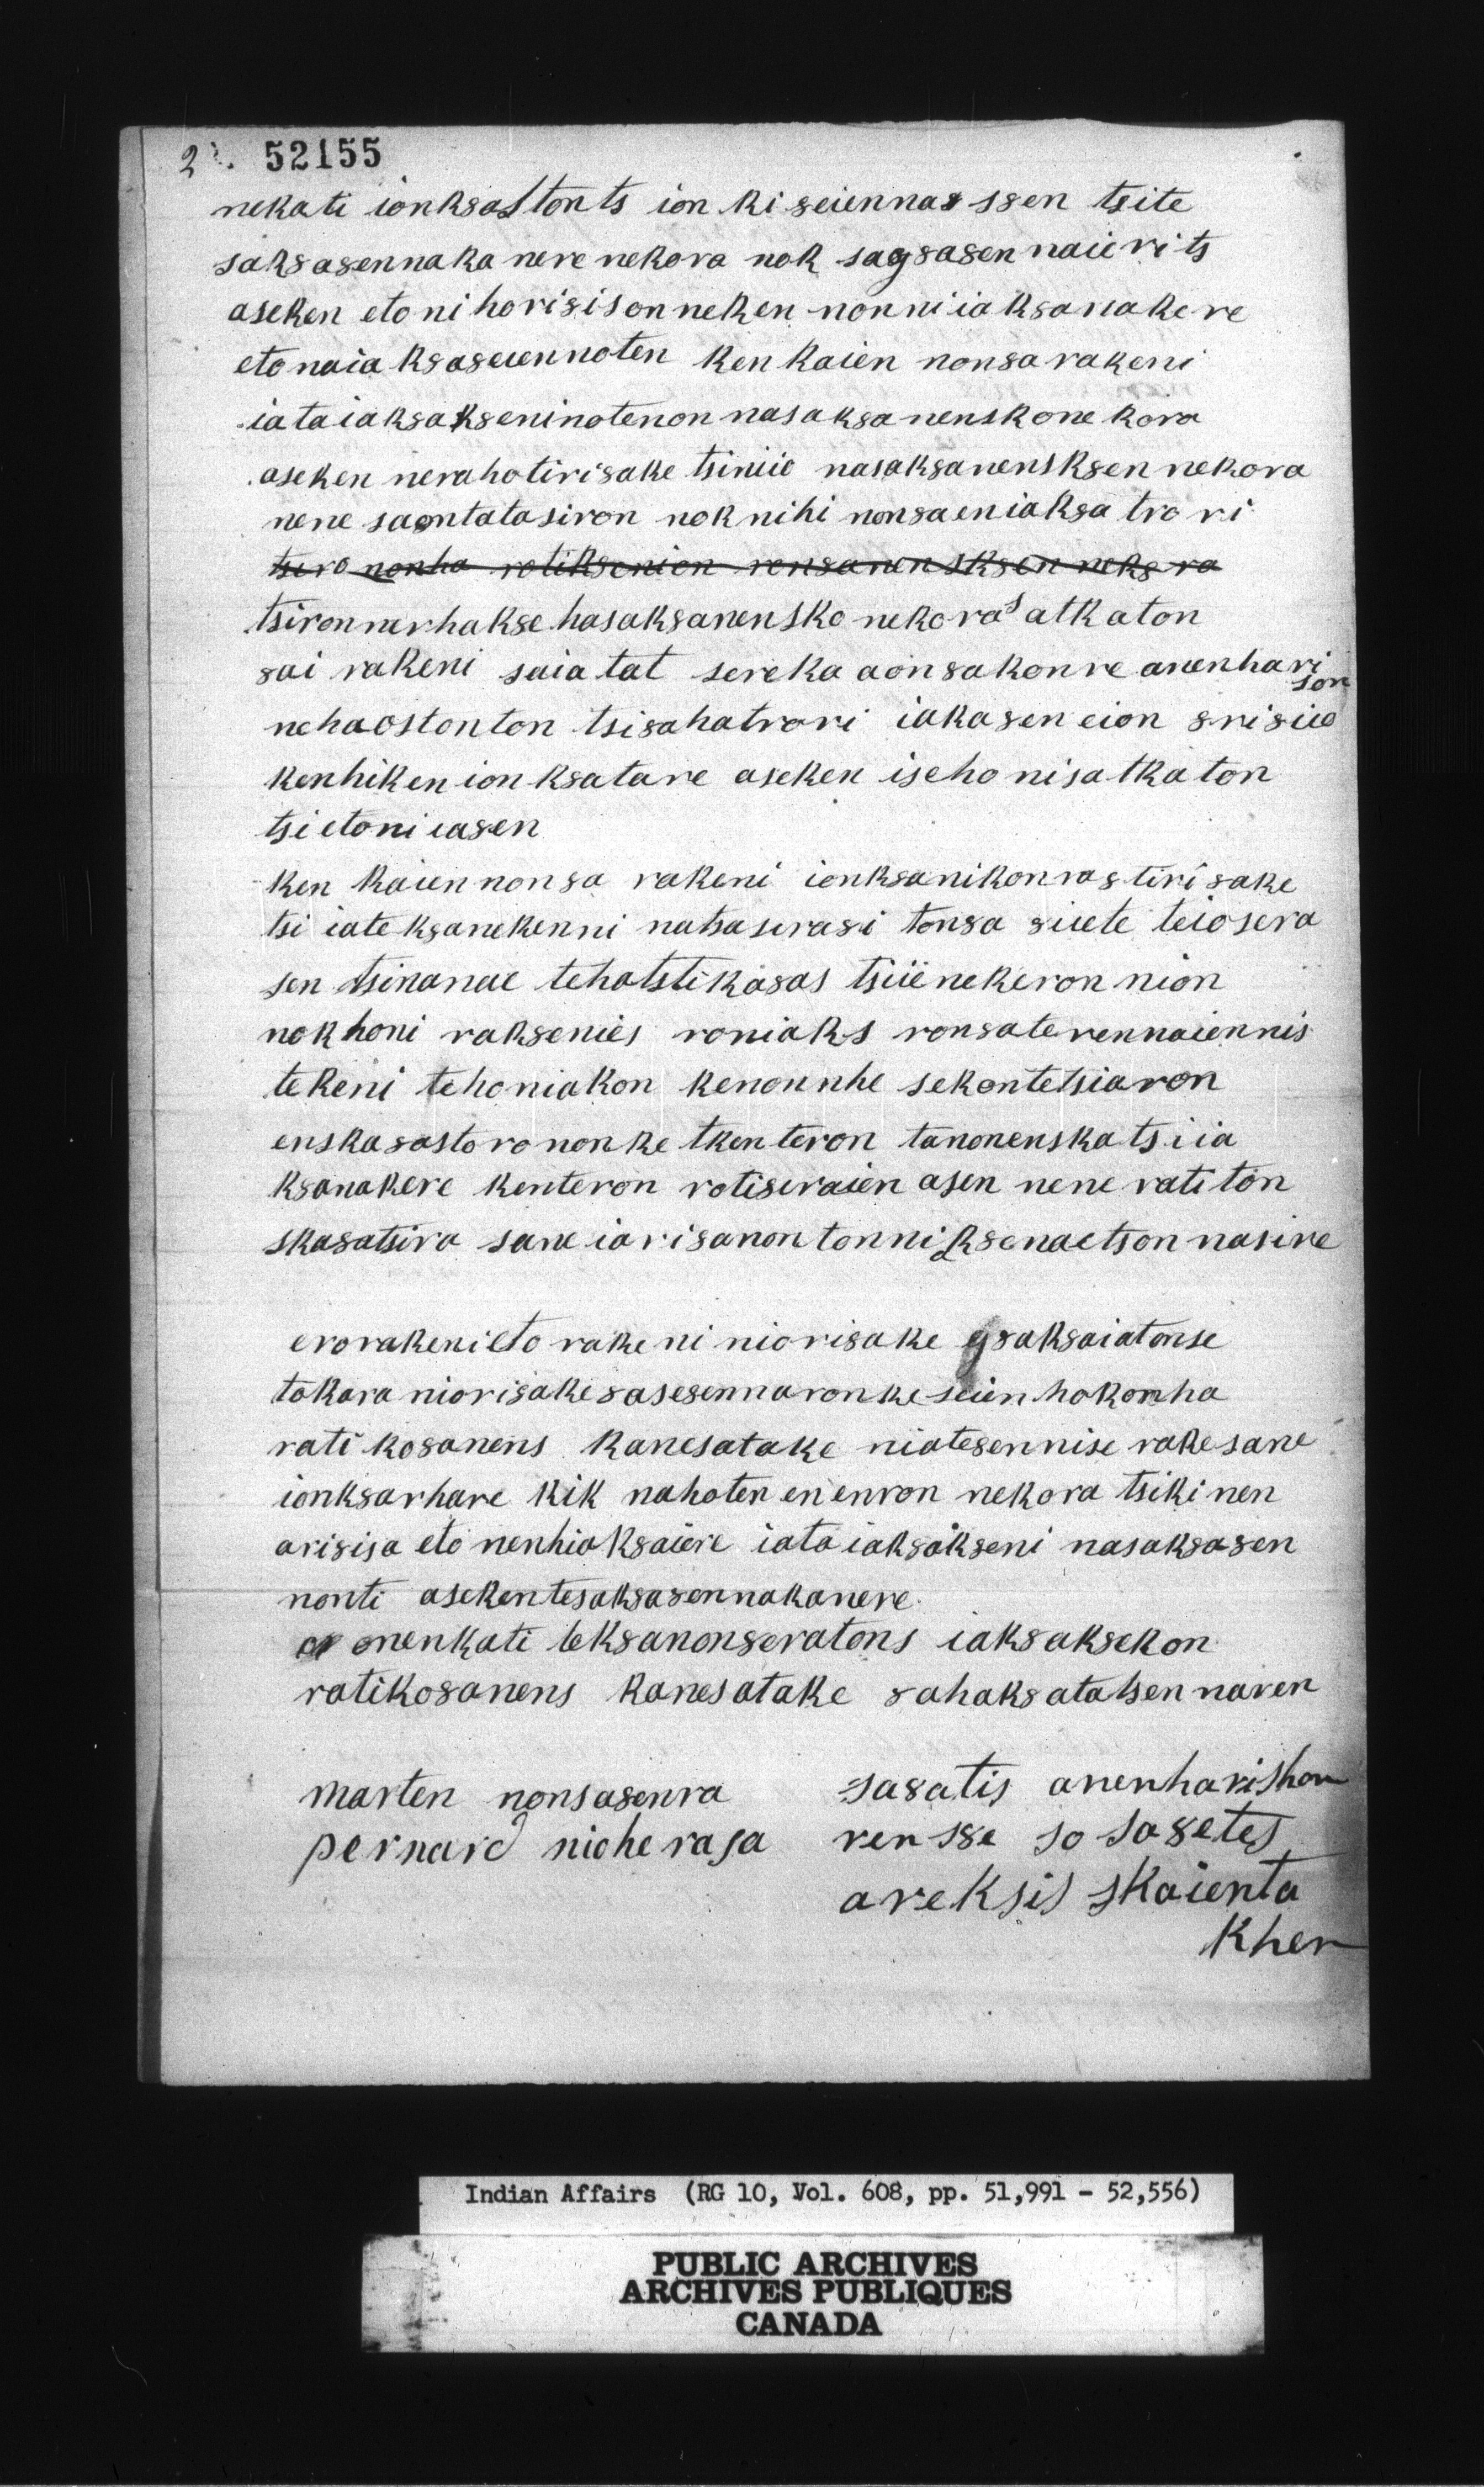 2 52155
nekati ionk8astonts ion ki 8eiennas s8en tsite
sak8a8ennaka nere nekora nok sag8a8en naieri ts
aseken eto ni hori8ison neken nonni iak8anakere
eto naia k8a8eiennoten ken kaien non8a rakeni
iata iak8ak8eninoten on nasak8anenskone kora
aseken nerahotiri8ake tsiniio nasak8anensk8en nekora
nene saontatasiron nok nihi non8a eniak8a tro ri
tsiro nonha rotik8enion ren8anensk8en nek8ra
tsironnerhak8e hasak8anensko nekora s atkaton
8ai rakeni saiatat sereka aon8akonre anenhari
son
nehaostonton tsi8ahatrori iaka8en eion 8ri8iio
kenhiken ionk8atare aseken iseho nisatkaton
tsi etoni ia8en
ken kaien non8a rakeni ionk8anikonra8tiri8ake
tsi iatek8anekenni natsasera8i ton8a 8iiete teiosera
sen tsinanae tehatstika8as tsiiienekeron nion
nok honi rak8enies roniaks ron8aterennaiennis
tekeni tehoniakon kenonnhe sekontetsiaron
enska8astorononke tkenteron tanonenska tsi ia
k8anakere kenteron roti8iraien asen nene rati ton
ska8atsira sane iari8anontonni k8enaetson nasire
erorakeni eto rakeni niori8ake 8ak8aiatonse
tokara niori8ake 8ase8ennaronke seien hokonha
rati ko8anens kanesatake niate8ennise rake8ane
ionk8arhare kik nahoten enenron nekora tsiki nen
ari8isa eto nenhiak8aiere iata iak8ak8eni nasak8a8en
nonti aseken tesak8a8ennakanere
onenkati tek8anon8eratons iak8ak8ekon
ratiko8anens kanesatake 8ahak8atatsennaren
marten nonsa8enra sa8atis anenharishon
pernard nioherasa ren s8e so sa8etes
areksis skaienta
kher
Indian Affairs (RG 10, Vol. 608, pp. 51,991 - 52,556)
PUBLIC ARCHIVES
ARCHIVES PUBLIQUES
CANADA